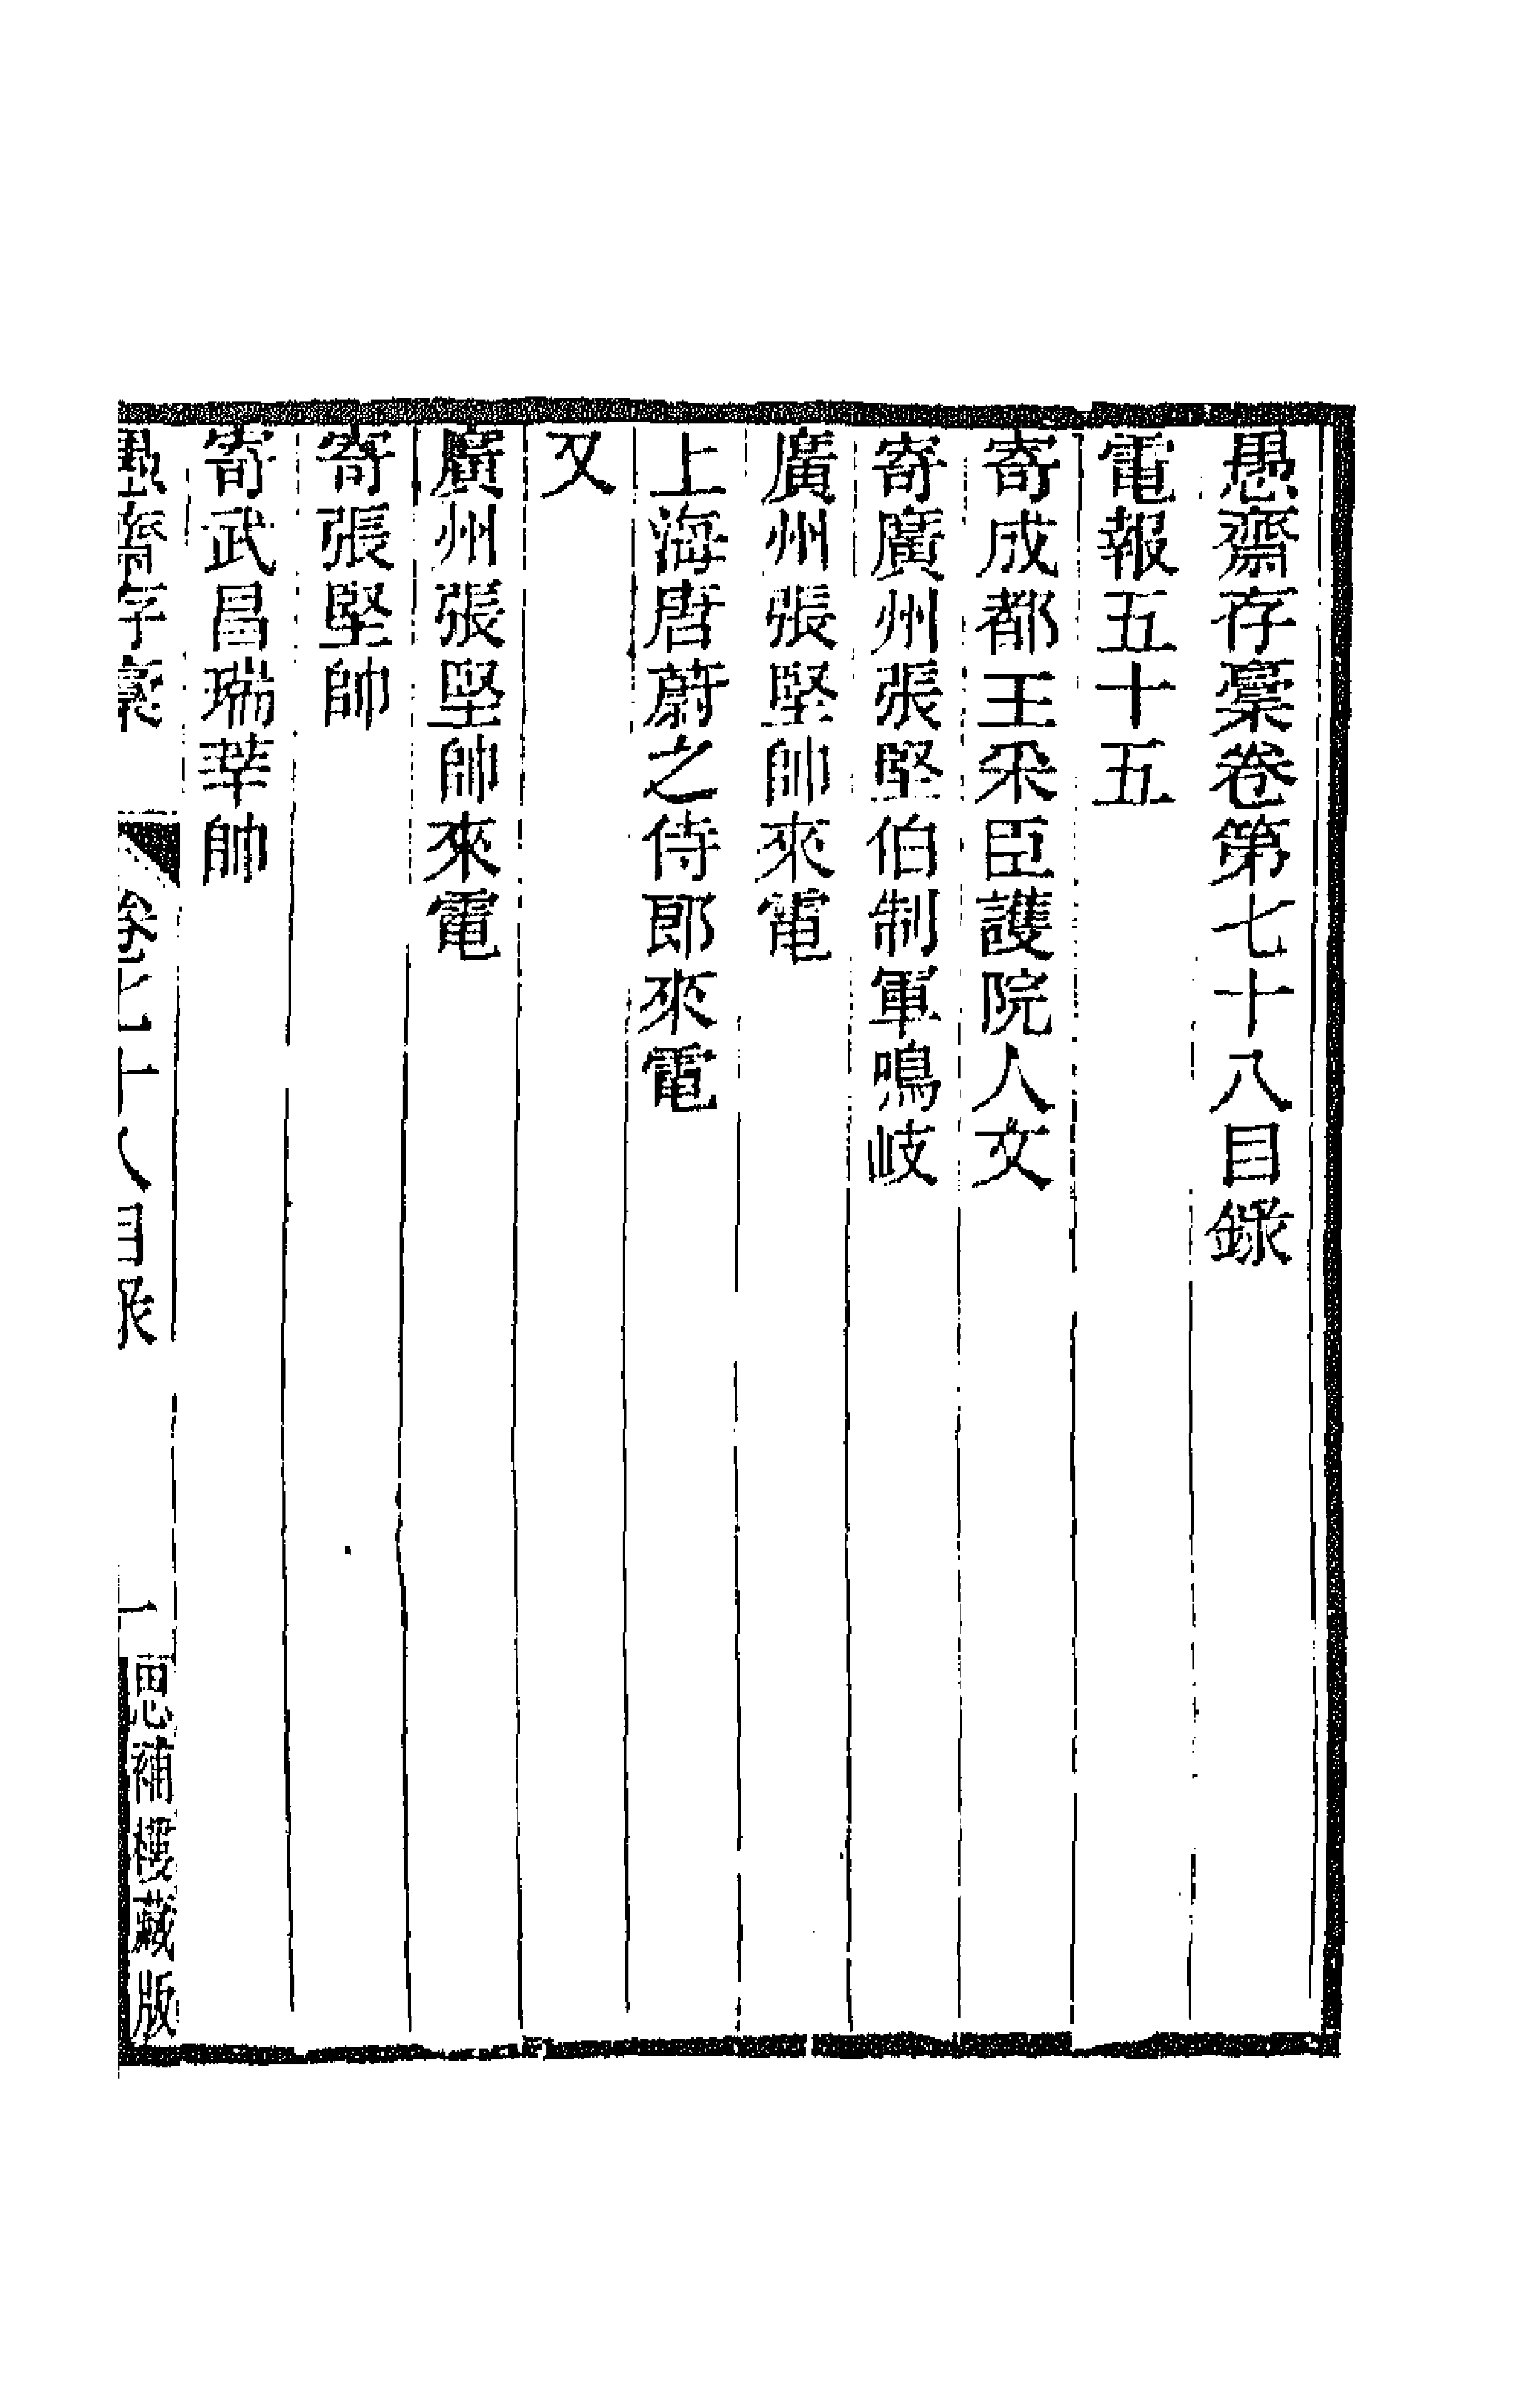 愚齋存稾卷第七十八目錄
電報五十五
寄成都王采臣護院人文
寄廣州張堅伯制軍鳴岐
廣州張堅帥來電
上海唐蔚之侍郎來電
又
廣州張堅帥來電
寄張堅帥
寄武昌瑞莘帥
愚齋存稾 卷七十八目錄 一 思補樓藏版